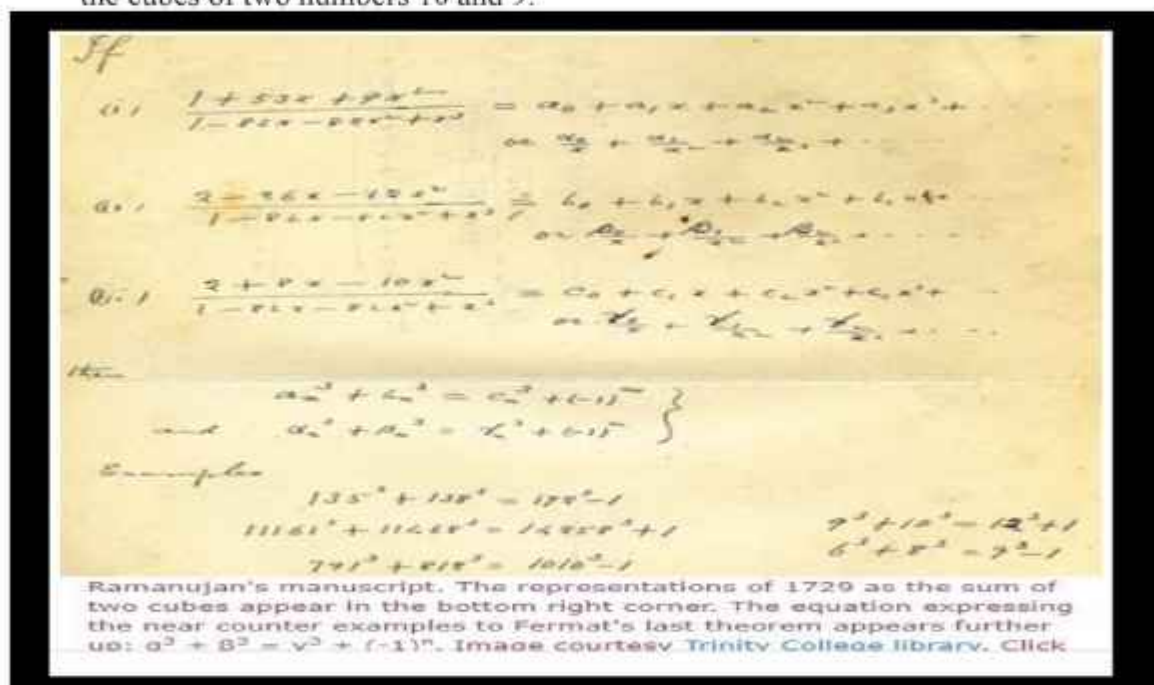 the cubes of two numbers 10 and 9.
If
(i) (1 + 53x + 9x²)/(1 - 82x - 82x² + x³) = a₀ + a₁x + a₂x² + a₃x³ + ...
or α₀/x + α₁/x² + α₂/x³ + ...
(ii) (2 - 26x - 12x²)/(1 - 82x - 82x² + x³) = b₀ + b₁x + b₂x² + b₃x³ + ...
or β₀/x + β₁/x² + β₂/x³ + ...
(iii) (2 + 8x - 10x²)/(1 - 82x - 82x² + x³) = c₀ + c₁x + c₂x² + c₃x³ + ...
or γ₀/x + γ₁/x² + γ₂/x³ + ...
then
aₙ³ + bₙ³ = cₙ³ + (-1)ⁿ
and αₙ³ + βₙ³ = γₙ³ + (-1)ⁿ
Examples
135³ + 138³ = 172³ - 1
11161³ + 11468³ = 14258³ + 1
791³ + 812³ = 1010³ - 1
9³ + 10³ = 12³ + 1
6³ + 8³ = 9³ - 1
Ramanujan's manuscript. The representations of 1729 as the sum of
two cubes appear in the bottom right corner. The equation expressing
the near counter examples to Fermat's last theorem appears further
up: α³ + β³ = γ³ + (-1)ⁿ. Image courtesy Trinity College library. Click